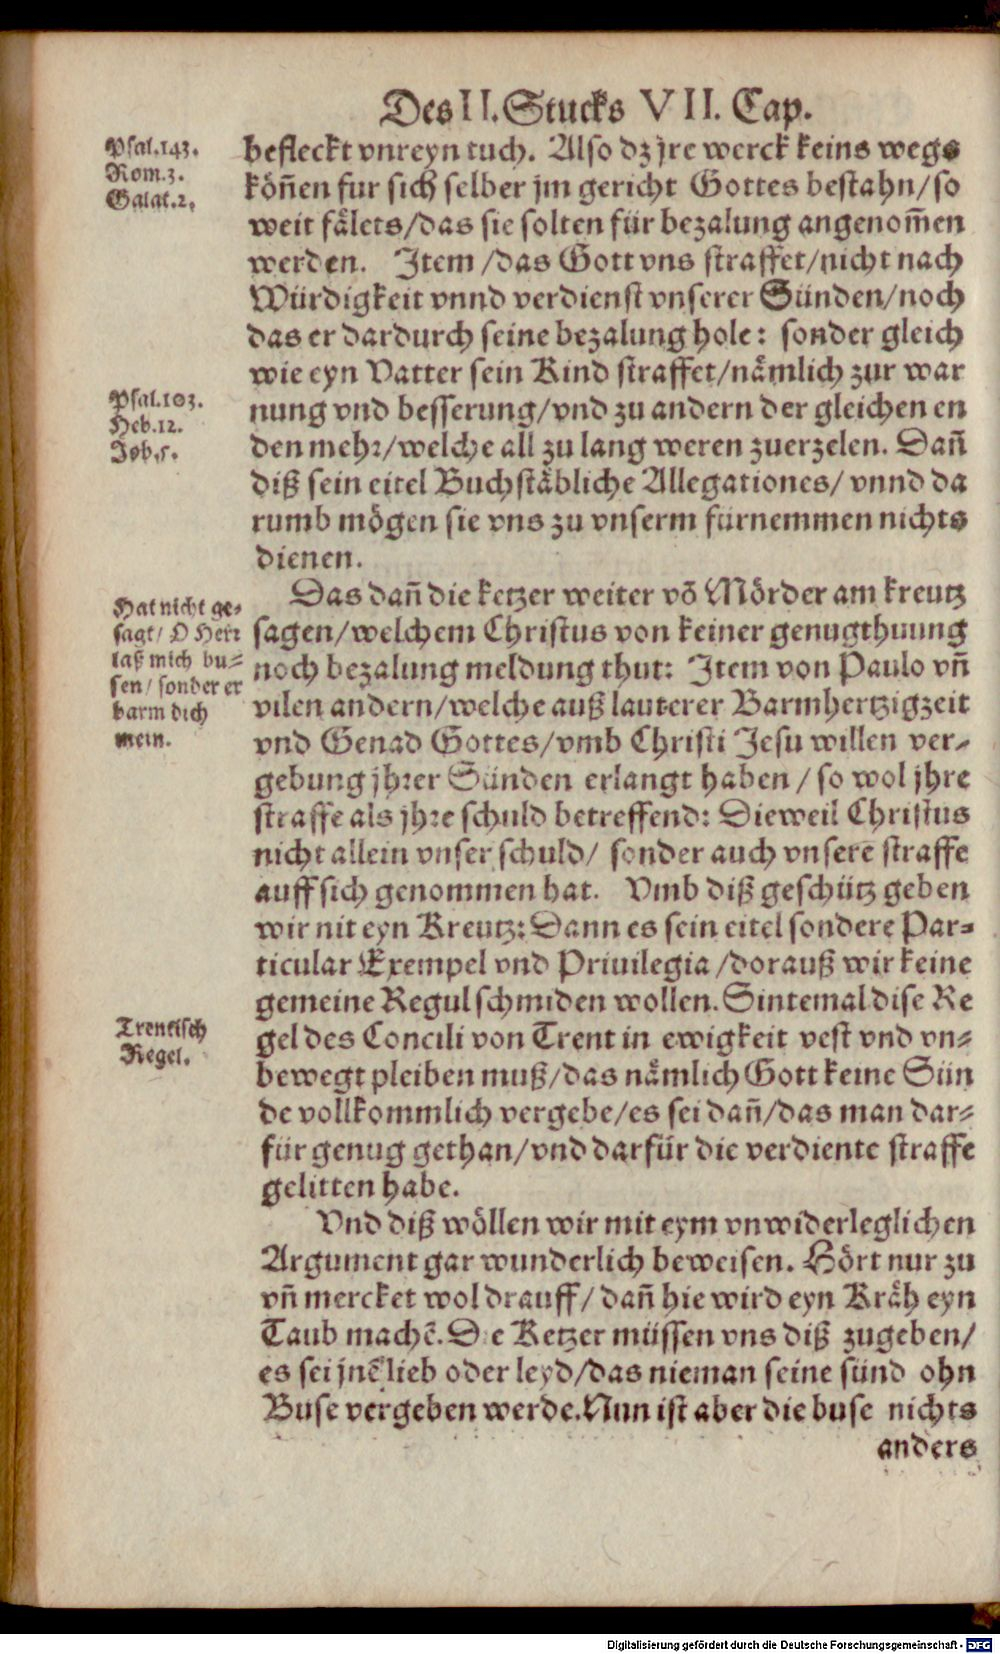 Des II. Stucks VII. Cap.
Psal.143.
Rom.3.
Galat.2.
befleckt vnreyn tuch. Also dz jre werck keins wegs
köñen fur sich selber jm gericht Gottes bestahn/so
weit fålets/das sie solten für bezalung angenom̃en
werden. Item/das Gott vns straffet/nicht nach
Würdigkeit vnnd verdienst vnserer Sünden/noch
das er dardurch seine bezalung hole: sonder gleich
wie eyn Vatter sein Kind straffet/nåmlich zur war
Psal.103.
Heb.12.
Job.5.
nung vnd besserung/vnd zu andern der gleichen en
den mehr/welche all zu lang weren zuerzelen. Dañ
diß sein eitel Buchståbliche Allegationes/ vnnd da
rumb mögen sie vns zu vnserm fürnemmen nichts
dienen.
Hat nicht ge-
sagt/ O Herr
laß mich bu-
sen/ sonder er
barm dich
mein.
Das dañ die ketzer weiter võ Mörder am kreutz
sagen/welchem Christus von keiner genugthuung
noch bezalung meldung thut: Item von Paulo vñ
vilen andern/welche auß lauterer Barmhertzigzeit
vnd Genad Gottes/vmb Christi Jesu willen ver-
gebung jhrer Sünden erlangt haben/ so wol jhre
straffe als jhre schuld betreffend: Dieweil Christus
nicht allein vnser schuld/ sonder auch vnsere straffe
auff sich genommen hat. Vmb diß geschütz geben
wir nit eyn Kreutz: Dann es sein eitel sondere Par-
ticular Exempel vnd Priuilegia/dorauß wir keine
gemeine Regul schmiden wollen. Sintemal dise Re
Trentisch
Regel.
gel des Concili von Trent in ewigkeit vest vnd vn-
bewegt pleiben muß/das nåmlich Gott keine Sün
de vollkommlich vergebe/es sei dañ/das man dar-
für genug gethan/vnd darfür die verdiente straffe
gelitten habe.
Vnd diß wöllen wir mit eym vnwiderleglichen
Argument gar wunderlich beweisen. Hört nur zu
vñ mercket wol drauff/ dañ hie wird eyn Kråh eyn
Taub machẽ. Die Ketzer müssen vns diß zugeben/
es sei jnẽ lieb oder leyd/das nieman seine sünd ohn
Buse vergeben werde. Nun ist aber die buse nichts
anders
Digitalisierung gefördert durch die Deutsche Forschungsgemeinschaft - DFG